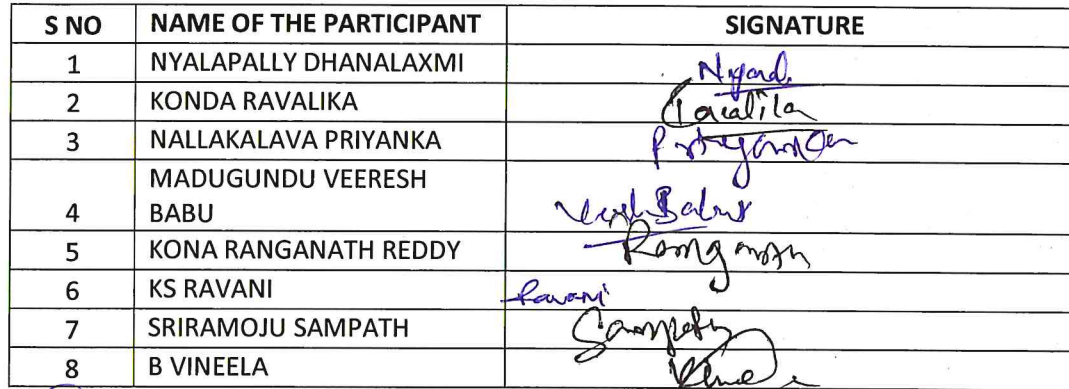 S NO NAME OF THE PARTICIPANT SIGNATURE
1 NYALAPALLY DHANALAXMI
2 KONDA RAVALIKA Ravalika
3 NALLAKALAVA PRIYANKA Priyanka
MADUGUNDU VEERESH
4 BABU Babu
5 KONA RANGANATH REDDY Ranganath
6 KS RAVANI Ravani
7 SRIRAMOJU SAMPATH Sampath
8 B VINEELA